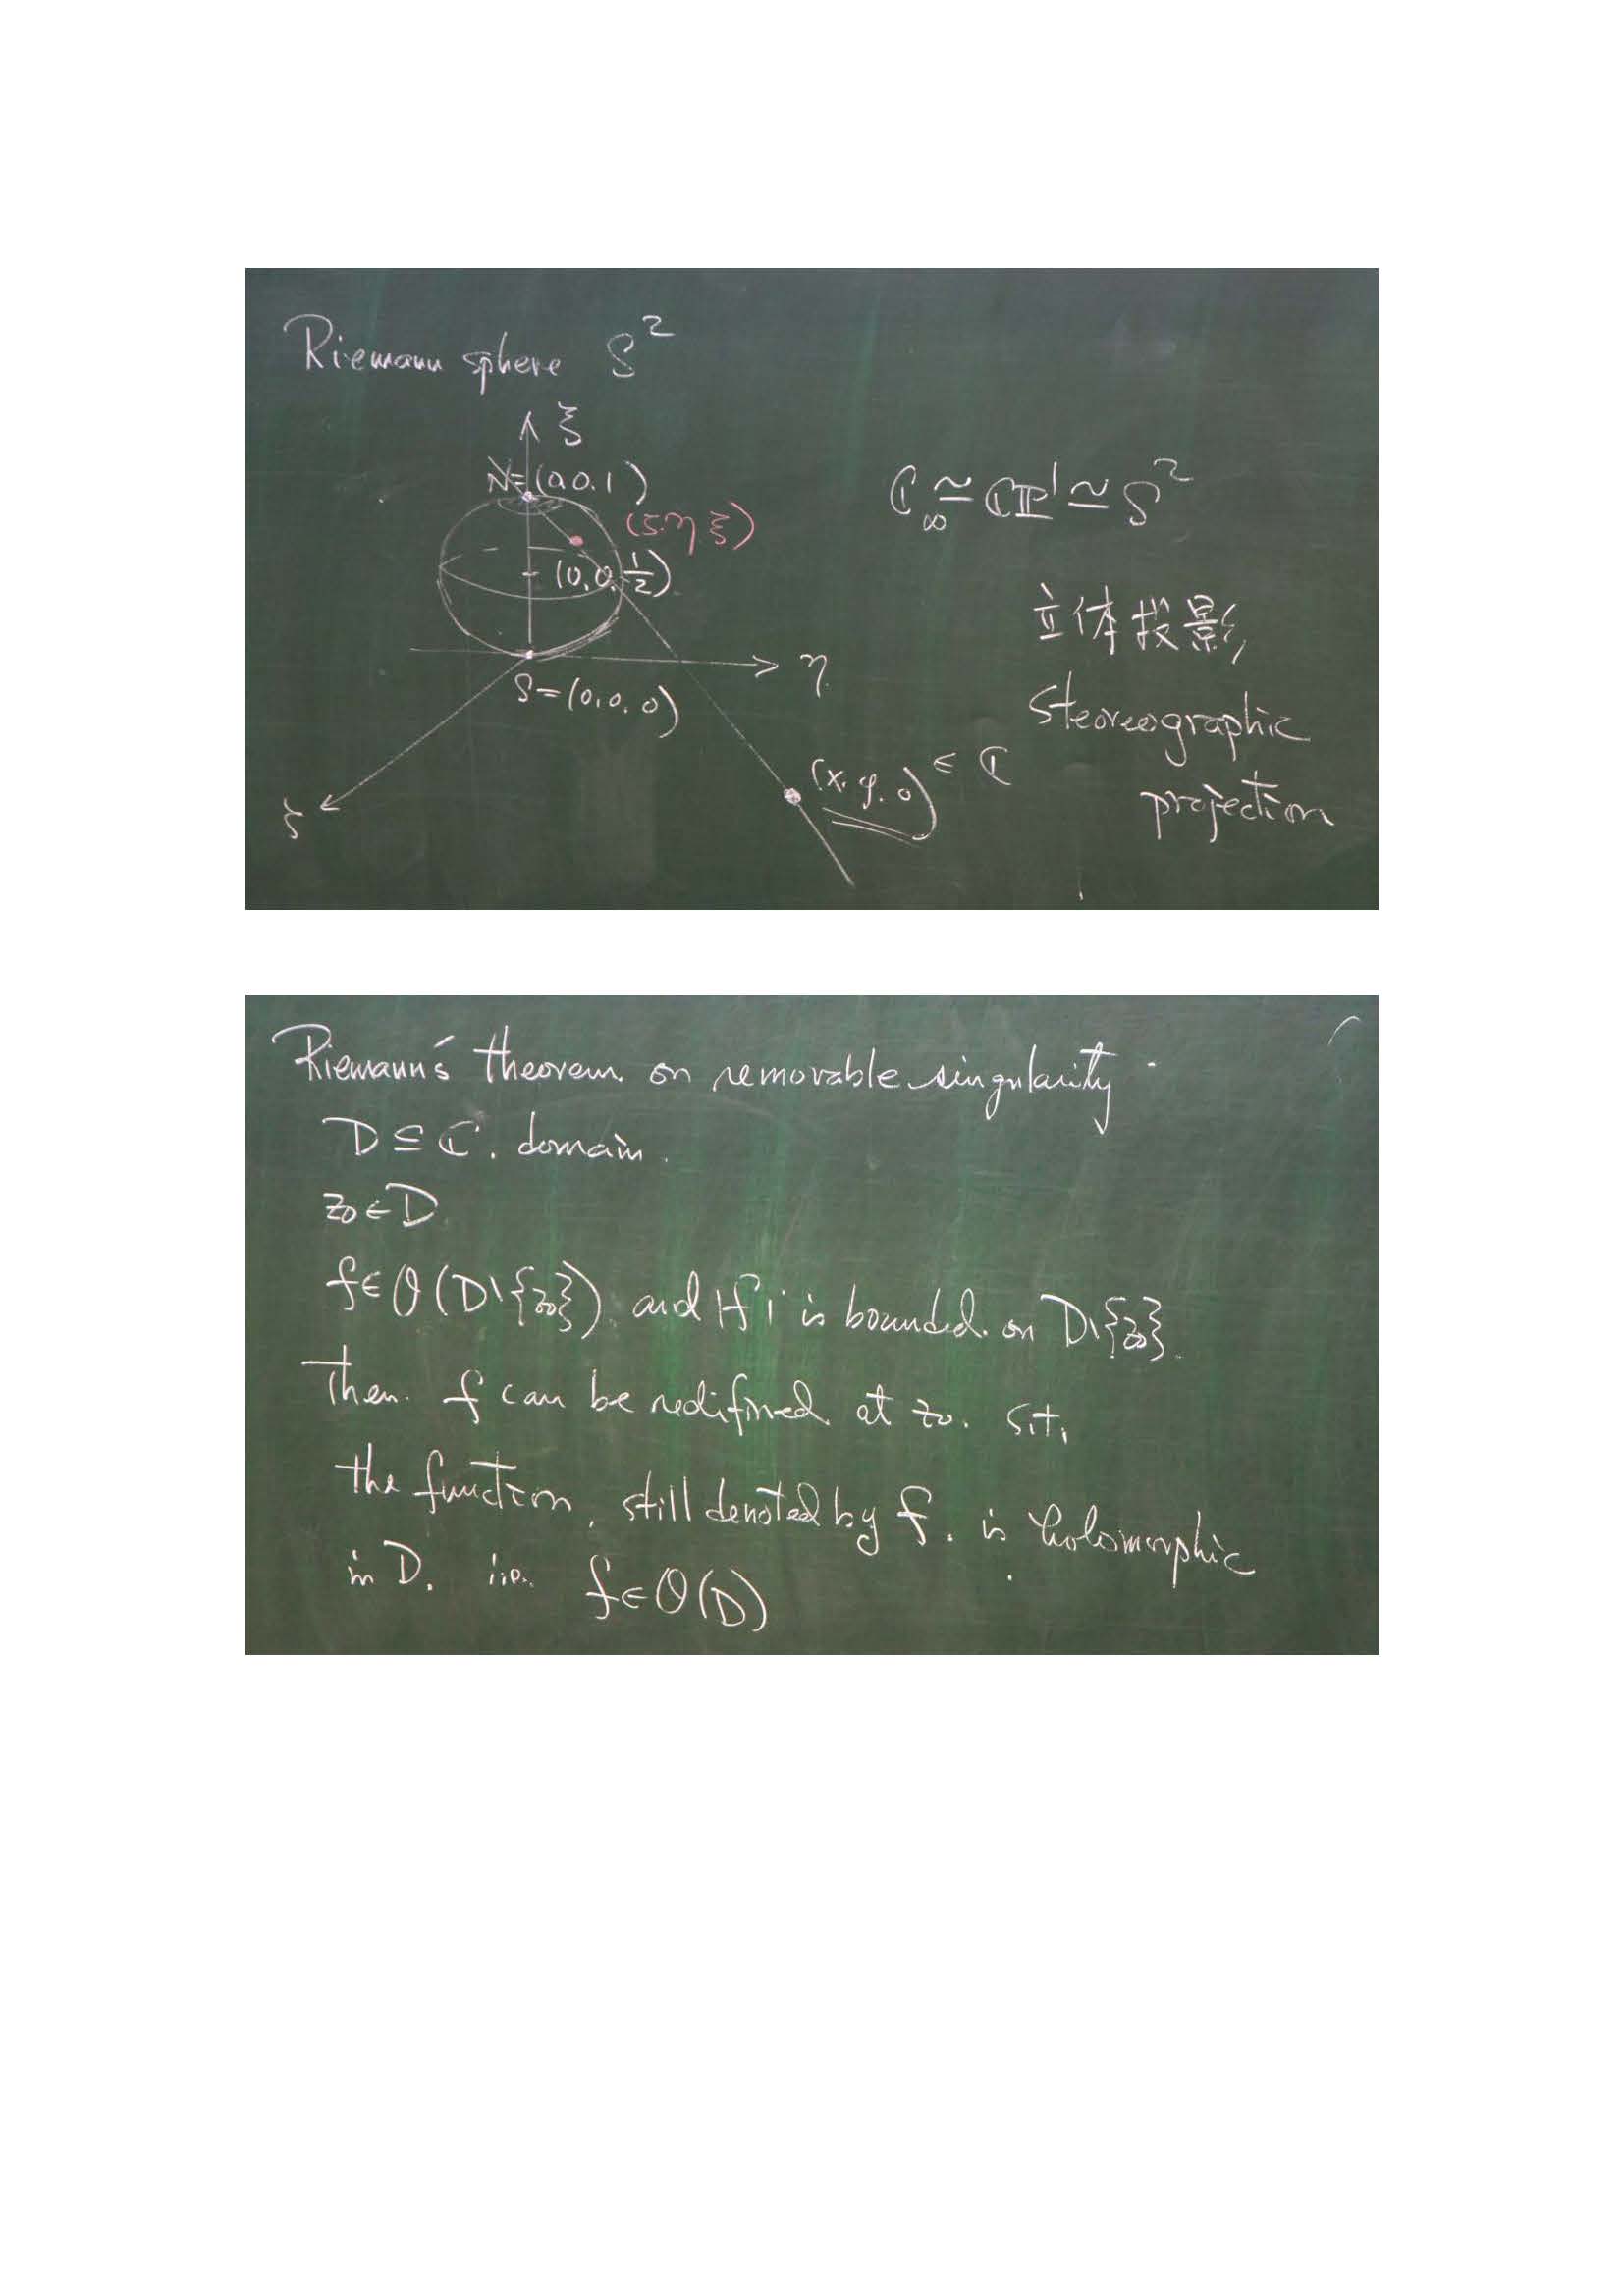 Riemann sphere S²
ξ
N=(0.0.1)
(ζ.η ξ)
(0,0,1/2)
η
S=(0,0,0)
ζ
(x.y.0) ∈ ℂ
ℂ∞ ≃ ℂℙ¹ ≃ S²
立体投影
steoreographic
projection
Riemann's theorem on removable singularity
D ⊆ ℂ. domain.
z₀ ∈ D
f ∈ O(D\{z₀}) and |f| is bounded on D\{z₀}.
Then f can be redifined at z₀. s.t.
the function, still denoted by f. is holomorphic
in D. i.e. f ∈ O(D)